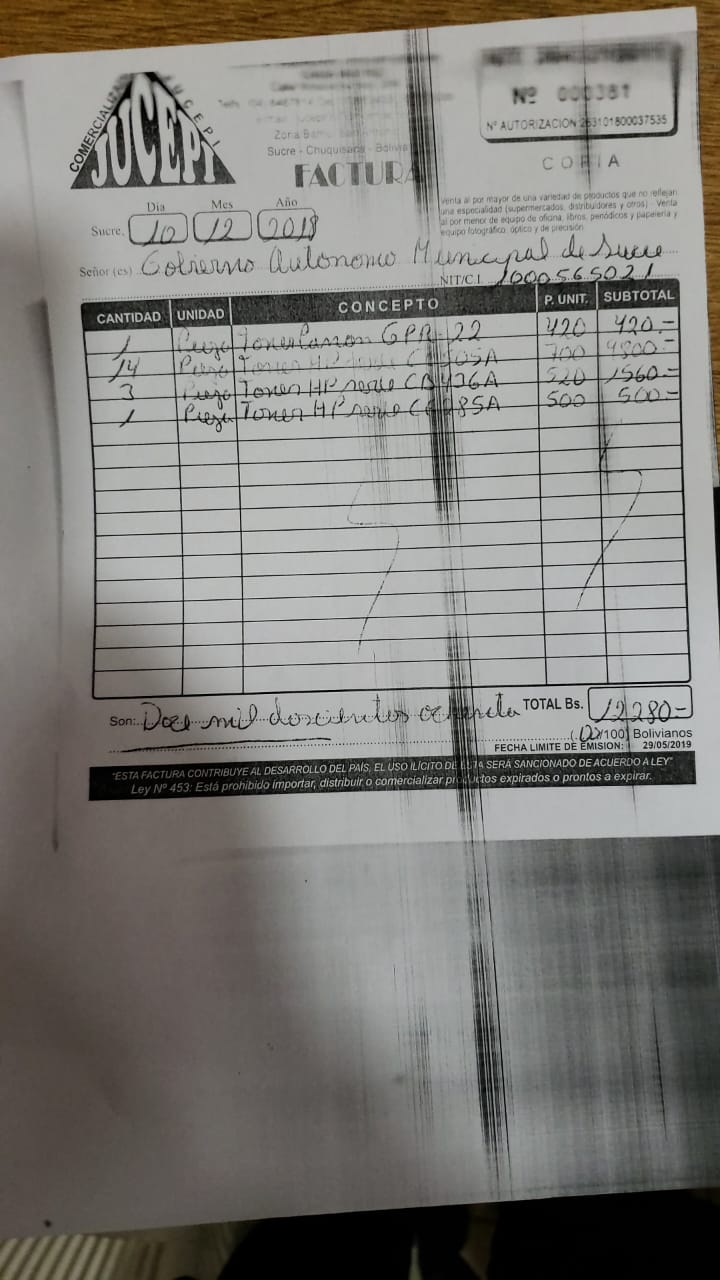 COMERCIALIZA JUCEPI
JUCEPI
Nº 000381
Nº AUTORIZACION 263101800037535
Zona
Sucre - Chuquisaca - Bolivia
COPIA
FACTURA
Venta al por mayor de una variedad de productos que no reflejan
una especialidad (supermercados, distribuidores y otros) - Venta
al por menor de equipo de oficina, libros, periódicos y papelería y
equipo fotográfico, óptico y de precisión.
Dia Mes Año
Sucre, 10 12 2018
Señor (es) Gobierno Autónomo Municipal de Sucre
NIT/C.I. 1000565021
CANTIDAD UNIDAD CONCEPTO P. UNIT. SUBTOTAL
1 Pieza Toner Canon GPR 22 420 420.-
14 Pieza Toner HP serie 505A 700 9800.-
3 Pieza Toner HP serie CB436A 520 1560.-
1 Pieza Toner HP serie 285A 500 500.-
Son: Doce mil doscientos ochenta TOTAL Bs. 12280.-
(00/100) Bolivianos
FECHA LIMITE DE EMISION: 29/05/2019
"ESTA FACTURA CONTRIBUYE AL DESARROLLO DEL PAÍS, EL USO ILÍCITO DE ESTA SERÁ SANCIONADO DE ACUERDO A LEY"
Ley Nº 453: Está prohibido importar, distribuir o comercializar productos expirados o prontos a expirar.